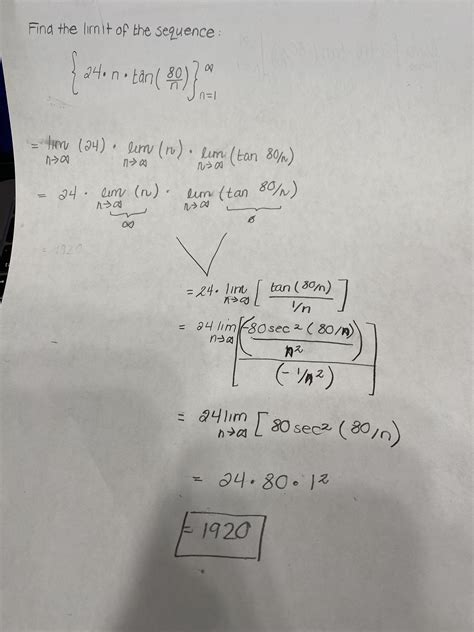 Find the limit of the sequence:
{24·n·tan(80/n)}∞n=1
= lim n→∞ (24) · lim n→∞ (n) · lim n→∞ (tan 80/n)
= 24 · lim n→∞ (n) · lim n→∞ (tan 80/n)
∞
= 1920
= 24· lim n→∞ [tan(80/n) / 1/n]
= 24 lim n→∞ [(-80 sec² (80/n) / n²) / (-1/n²)]
= 24 lim n→∞ [80 sec² (80/n)
= 24·80·1²
= 1920